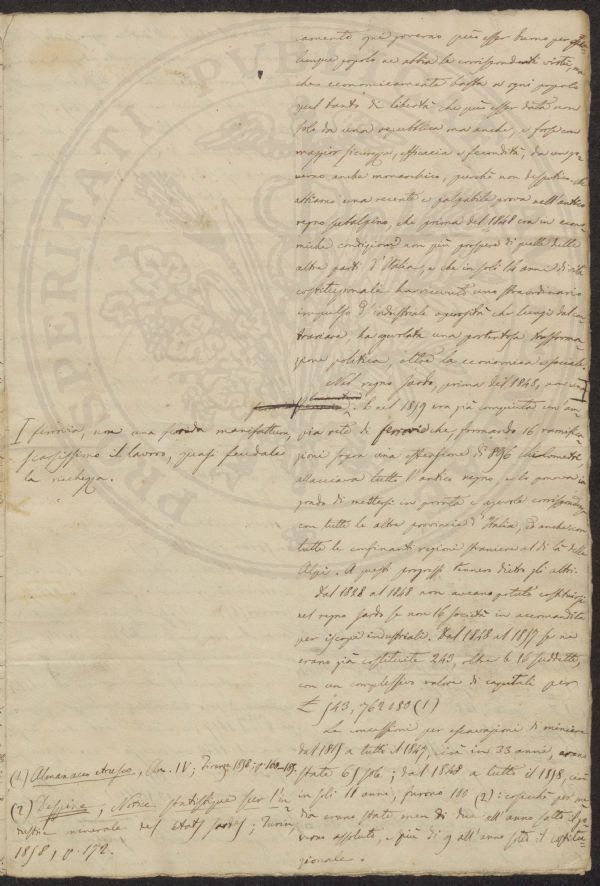 camente qui governo può esser buono per qua-
lunque popolo ne abbia le corrispondenti virtù, ma
che economicamente basta a ogni popolo
quel tanto di libertà che può esser dato non
solo da una repubblica ma anche, e forse con
maggior sicurezza, efficacia e fecondità, da un go-
verno anche monarchico, purchè non dispotico, che
abbiamo una recente e palpabile prova nell'antico
regno subalpino, che prima del 1848 era in econo-
miche condizioni non più prospere di quelle delle
altre parti d'Italia, e che in soli 14 anni di vita
costituzionale ha ricevuto uno straordinario
impulso d'industriale operosità che lungi dal con-
trariare ha agevolata una portentosa trasforma-
zione politica, oltre la economica e sociale.
Nel regno sardo, prima del 1848, non
E nel 1859 era già compiuta con am-
pia rete di ferrovie che, formando 16 ramifica-
zioni sopra una estensione di 896 chilometri,
allacciava tutto l'antico regno, e lo poneva in
grado di mettersi in pronta e agevole corrispondenza
con tutte le altre provincie d'Italia, ed anche con
tutte le confinanti regioni straniere al di là delle
Alpi. A questi progressi tennero dietro gli altri.
Dal 1828 al 1848 non aveano potuto costituirsi
nel regno sardo se non 16 società in accomandita
per iscopi industriali. Dal 1848 al 1857 se ne
erano già costituite 243, oltre le 16 suddette,
con un complessivo valore di capitali per
£ 543,762180 (1)
Le concessioni per escavazioni di miniere
dal 1815 a tutto il 1847, cioè in 33 anni, erano
state 65 sole; dal 1848 a tutto il 1858, cioè
in soli 11 anni, furono 100 (2): cosicchè per me-
dia erano state men di due all'anno sotto il go-
verno assoluto, e più di 9 all'anno sotto il costitu-
zionale.
I ferrovia, non una florida manifattura,
scarsissimo il lavoro, quasi feudale
la ricchezza.
(1) Almanacco etrusco, An. IV; Firenze 1858; p. 100-105.
(2) Despine, Notice statistique sur l'in-
dustrie minerale des Etats sardes; Turin
1858, p. 172.